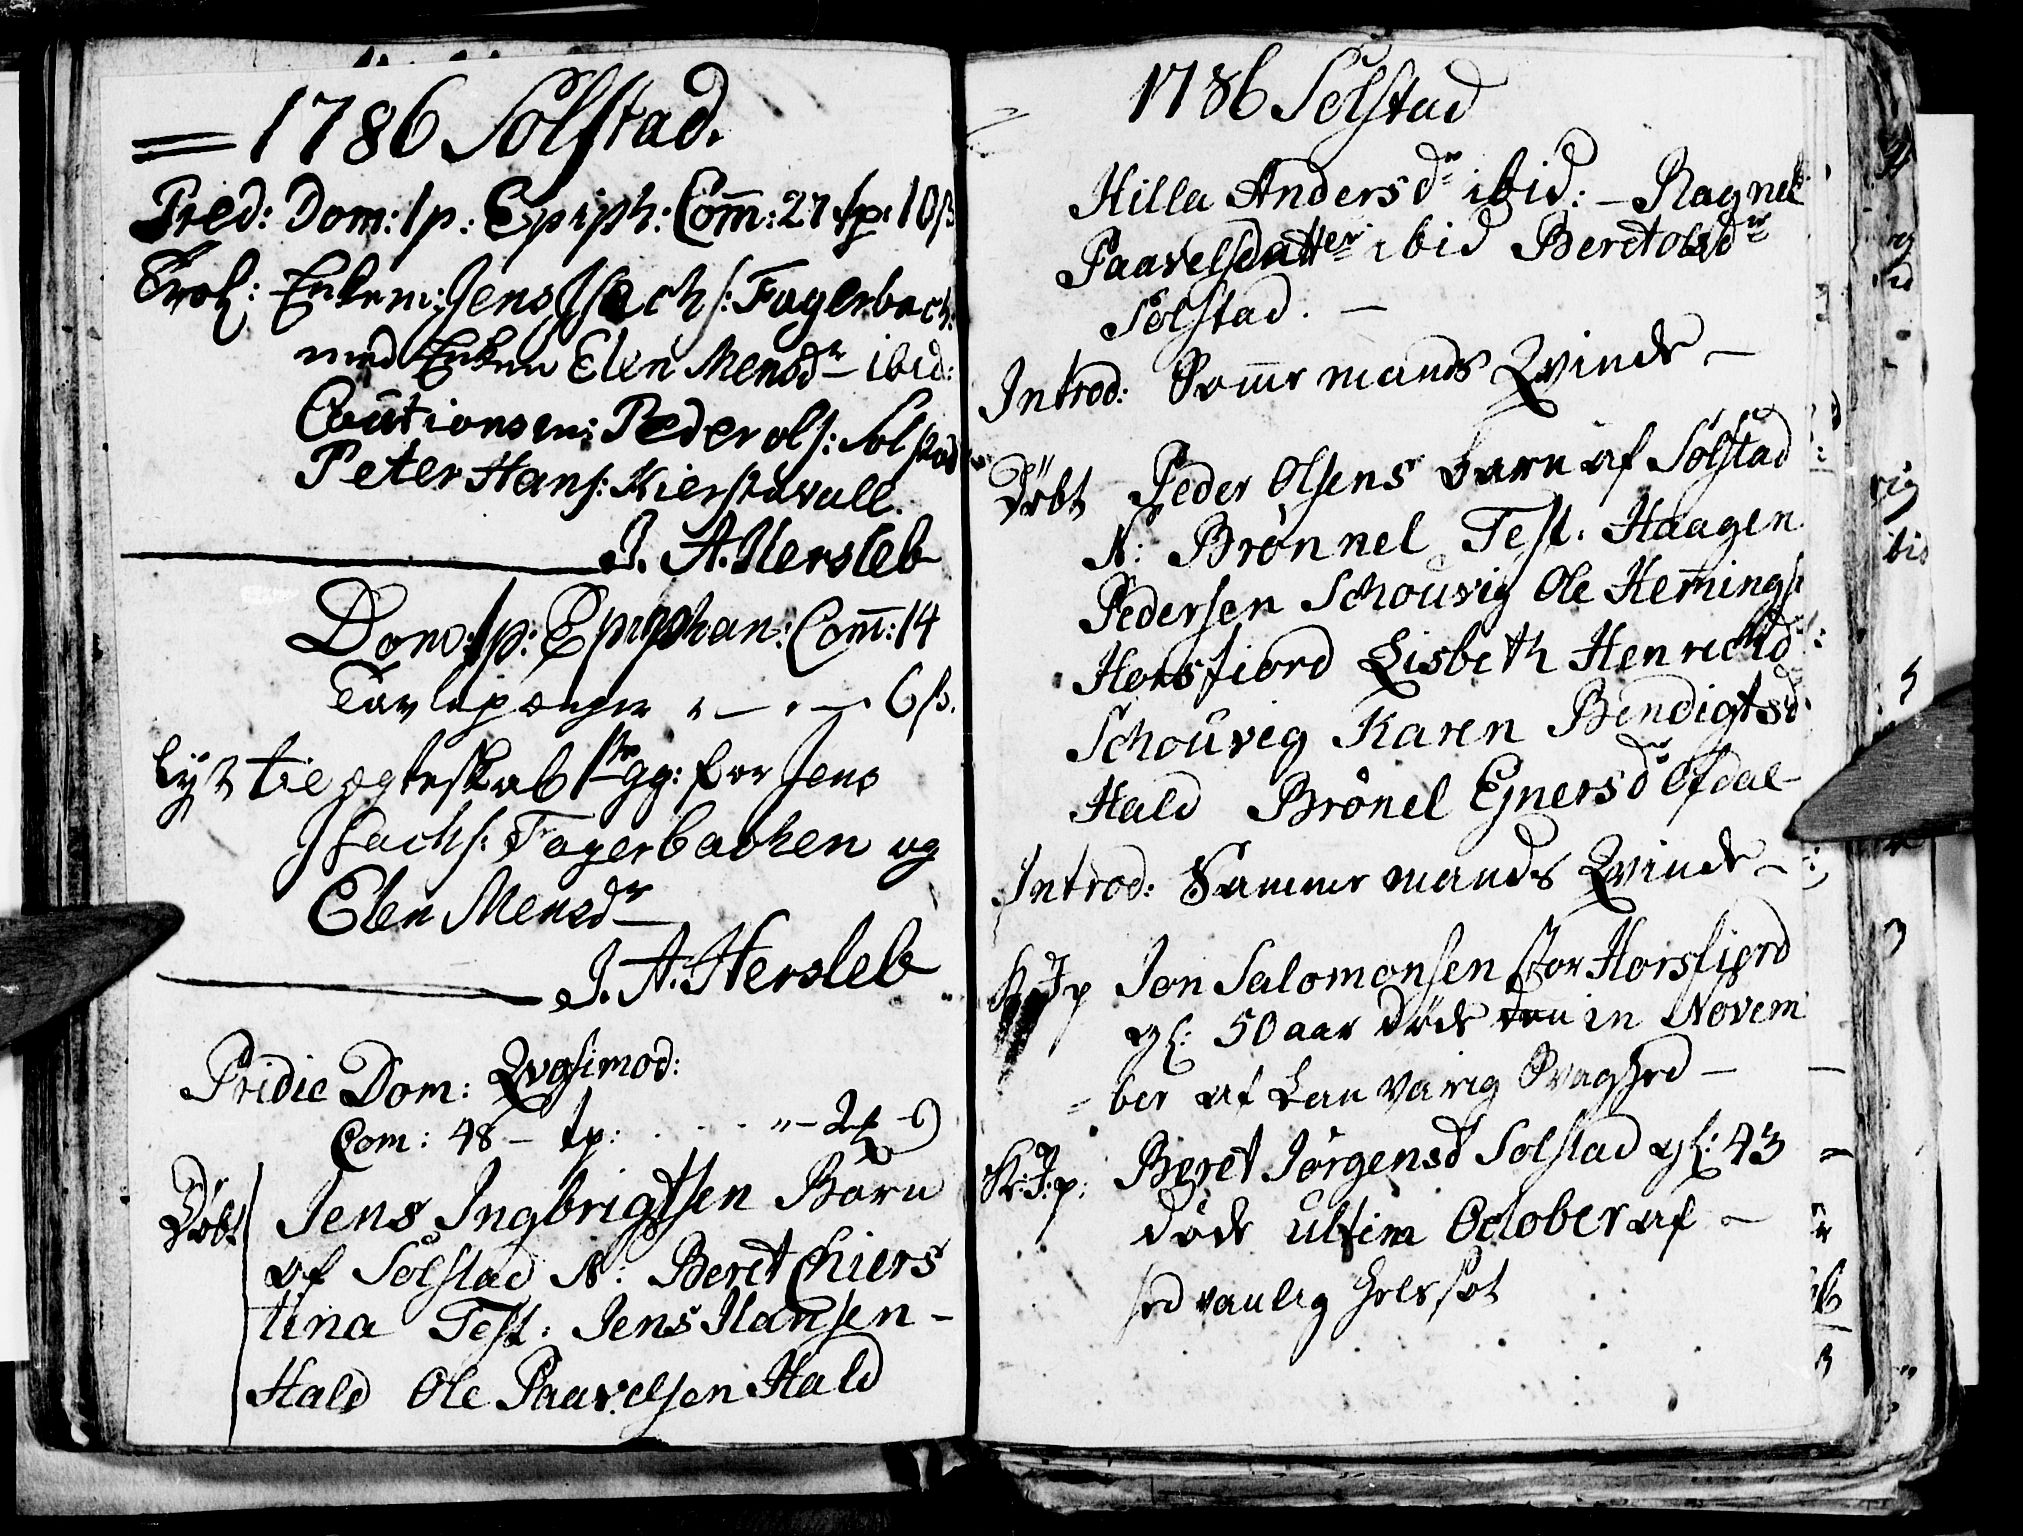 1786 Sølstad.
Pred: Dom: 1 p: Epiph: Com̄: 27 tp: 10 ß
Trol: Enkem: Jens Isachs: Fagerbach:
med Enken Elen Mensdr ibid:
Cautionsm: Peder ols: Solstad
Peter Hans: Kierstavall.
J. A. Hersleb
Dom: 1 p: Epiphan: Com̄: 14
Tavlepænger 6 ß.
Lyst til ægteskab 1ste gg: for Jens
Isachs: Fagerbachen og
Elen Mensdr
J. A. Hersleb
Pridie Dom: Qvasimod:
Com: 48 – tp:
Døbt Jens Ingbrigtsen Barn
af Sølstad N: Beret Chiers
tina Test: Jens Hansen –
Hald Ole Paavelsen Hald
1786 Sølstad
Hilla Andersdr ibid: – Ragnel
Paavelsdatter ibid Beret olsdr
Sølstad. –
Introd: Sam̄e mands Qvinde –
Døbt Peder Olsens barn af Sølstad
N: Brønnel Test: Haagen
Pedersen Schouvig Ole Hem̄ings:
Horsfiord Lisbeth Henrichsd:
Schouvig Karen Bendigtsd
Hald Brønel Ejnersdr Ofdal –
Introd: Samme mands Qvinde –
Jon Salomonsen stor Horsfiord
gl: 50 aar døde in Novem
ber af Lan varig Svaghed –
Beret Jørgensd Solstad gl: 43
døde ultim October af –
sedvanlig